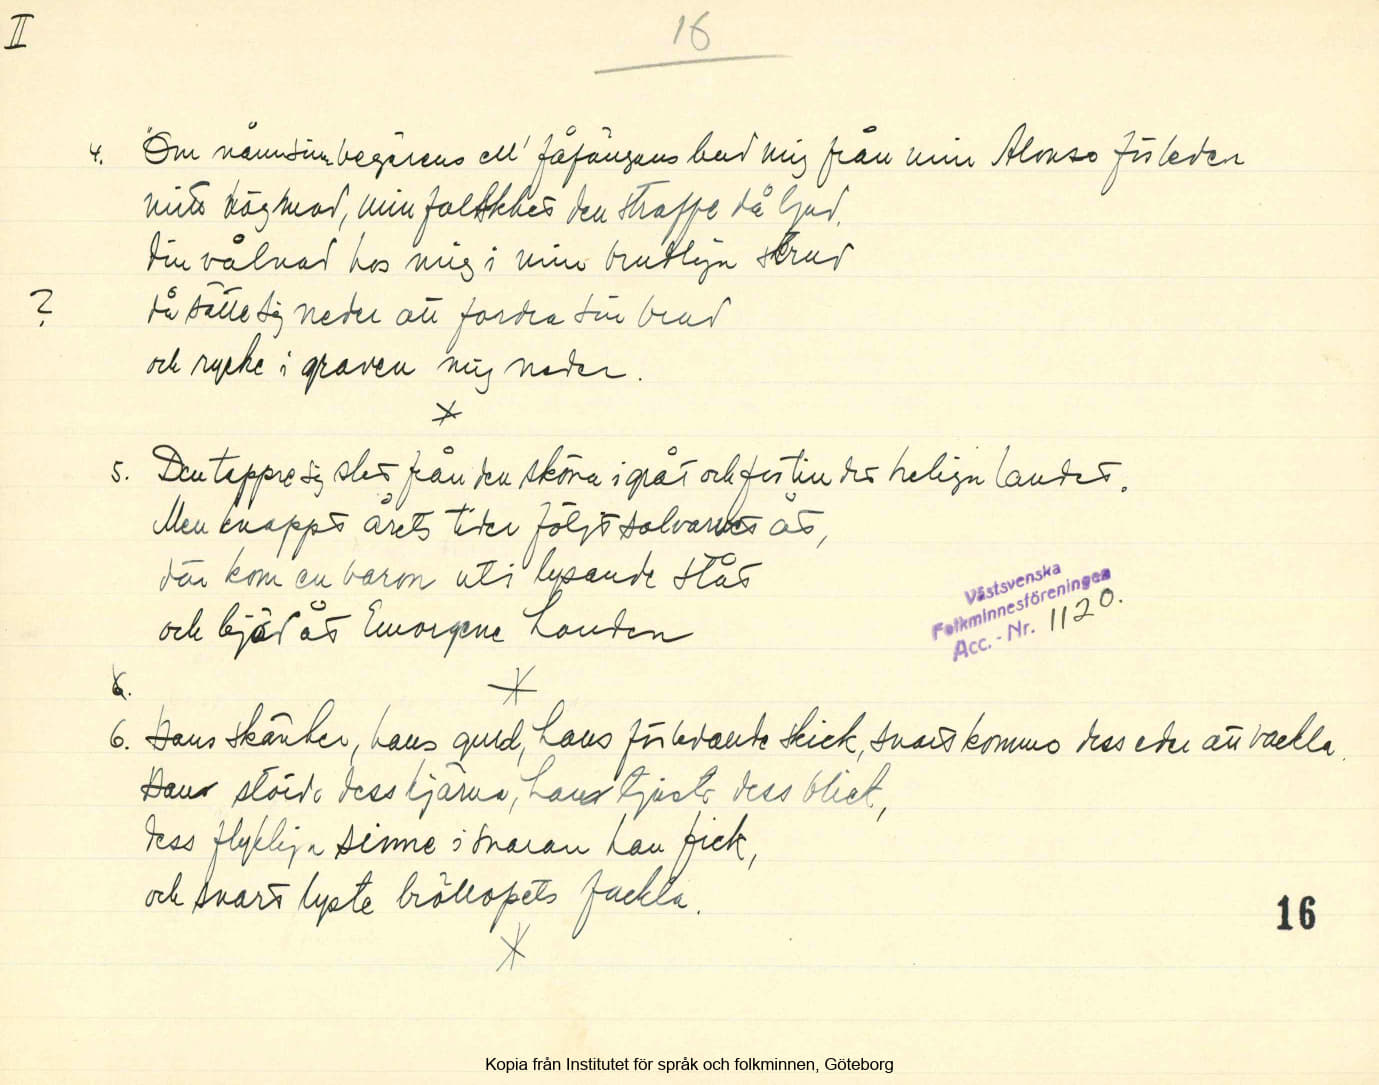 II
16
4. "Om nånsin begärens ell' fåfängans bud mig från min Alonso förleder
mitt högmod, min falskhet den straffe då Gud,
din vålnad hos mig i min brudliga skrud
? då sätte sig neder att fordra sin brud
och rycke i graven mig neder.
5. Den tappre sig slet från den sköna i gråt och for till det heliga landet.
Men knappt årets tider följt salvornes åt,
där kom en baron uti lysande ståt
och bjöd åt Emorgene handen
6.
6. Hans skänker, hans guld, hans förledande skick, snart kommo dess eder att vackla.
Hans störde dess hjärna, hans tjuste dess blick,
dess flyktiga sinne i snaran han fick,
och snart lyste bröllopets fackla.
Västsvenska
Folkminnesföreningen
Acc. - Nr. 1120.
16
Kopia från Institutet för språk och folkminnen, Göteborg